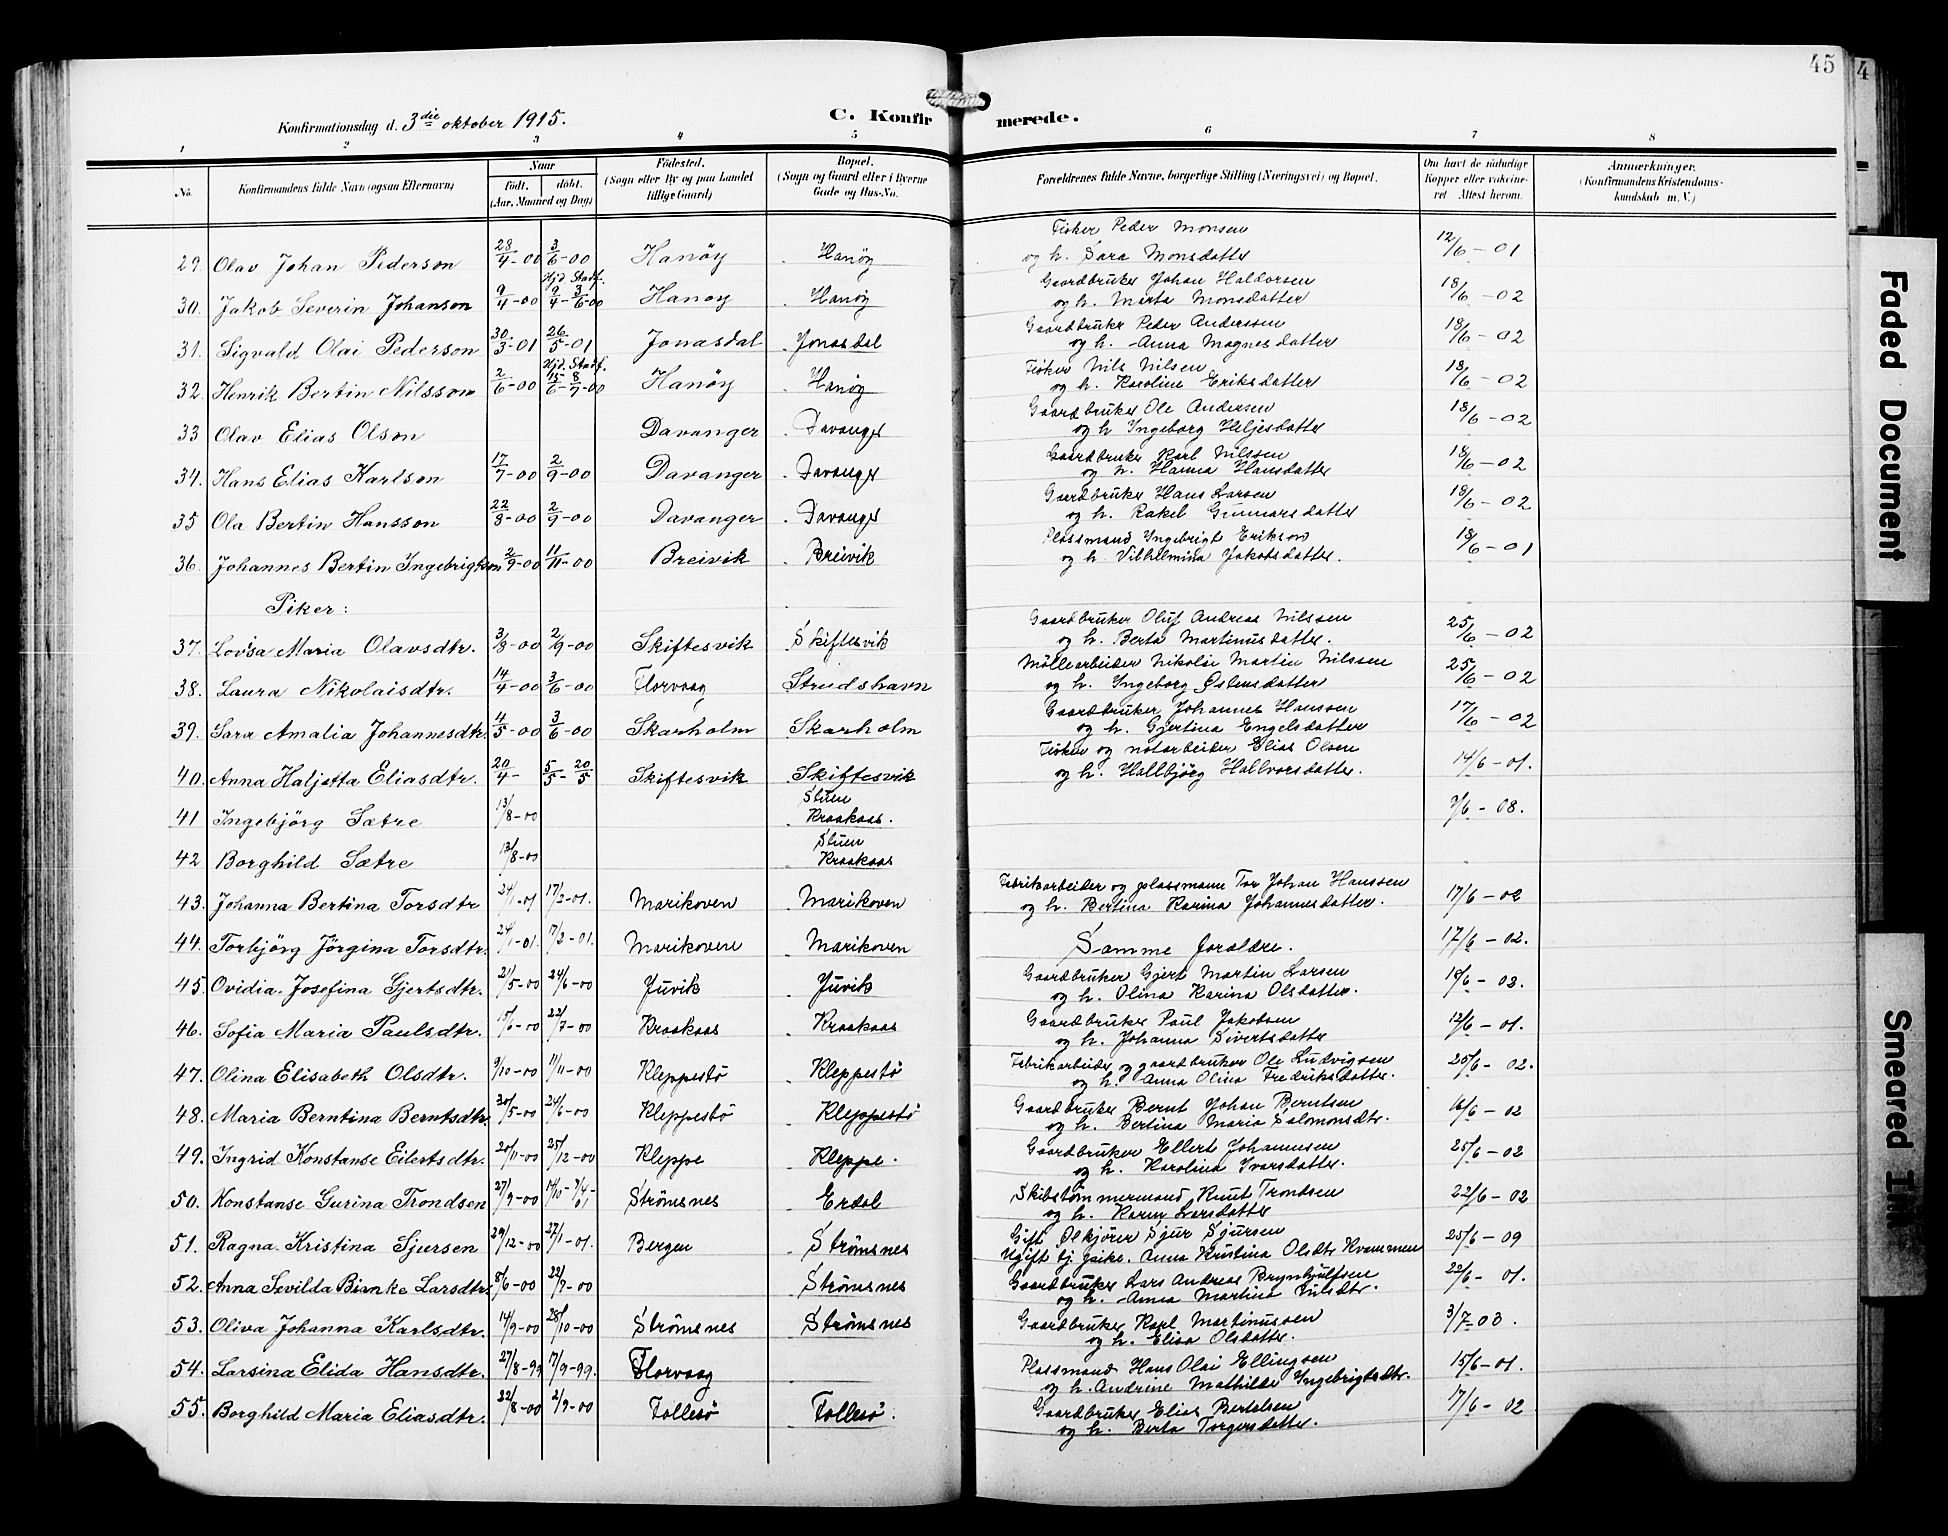 45
4
Konfirmationsdag d. 3die oktober 1915.
C. Konfirmerede.
1 2 3 4 5 6 7 8
No. Konfirmandens fulde Navn (ogsaa Efternavn) Naar født. døbt. (Aar, Maaned og Dag) Fødested. (Sogn eller By og paa Landet tillige Gaard) Bopæl. (Sogn og Gaard eller i Byerne Gade og Hus-No. Forældrenes fulde Navne, borgerlige Stilling (Næringsvei) og Bopæl. Om havt de naturlige Kopper eller vakcineret. Attest herom. Anmærkninger. (Konfirmandens Kristendomskundskab m. V.)
29. Olav Johan Pederson 28/4-00 3/6-00 Hanöy Hanöy Fisker Peder Monsen og h. Sara Monsdatter 12/6-01
30. Jakob Severin Johanson 9/4-00 Hjd. 9/4- Stadf. 3/6-00 Hanöy Hanöy Gaardbruker Johan Haldorsen og h. Marta Monsdatter 18/6-02
31. Sigvald Olai Pederson 30/3-01 26/5-01 Jonasdal Jonasdal Gaardbruker Peder Anderssen og h. Anna Magnesdatter 18/6-02
32. Henrik Bertin Nilsson 2/6-00 Hjd. 15/6- Stadf. 8/7-00 Hanöy Hanöy Fisker Nils Nilsen og h. Karoline Eriksdatter 18/6-02
33 Olav Elias Olson Davanger Davanger Gaardbruker Ole Andersen og h Ingeborg Heljesdatter 18/6-02
34. Hans Elias Karlson 17/7-00 2/9-00 Davanger Davanger Gaardbruker Karl Nilssen og h. Hanna Hansdatter 18/6-02
35 Ola Bertin Hansson 22/8-00 2/9-00 Davanger Davanger Gaardbruker Hans Larsen og h. Rakel Gunnarsdatter 18/6-02
36. Johannes Bertin Ingebrigtson 2/9-00 11/11-00 Breivik Breivik Plassmand Ingebrigt Erikson og h Vilhelmina Jakobsdatter. 18/6-01
Piker:
37. Lovisa Maria Olavsdtr. 3/8-00 2/9-00 Skiftesvik Skiftesvik Gaardbruker Oluf Andreas Nilssen og h. Berta Martinusdatter. 25/6-02
38. Laura Nikolaisdtr. 14/4-00 3/6-00 Florvaag Strudshavn Möllearbeider Nikolai Martin Nilssen og h. Ingeborg Östensdatter 25/6-02
39. Sara Amalia Johannesdtr. 4/5-00 3/6-00 Skarholm Skarholm Gaardbruker Johannes Hansson og h. Gjertina Engelsdatter 17/6-02
40. Anna Haljetta Eliasdtr. 20/4- 5/5-20/5 Skiftesvik Skiftesvik Fisker og notarbeider Elias Olsen og h. Hallbjörg Hallvorsdatter. 14/6-01.
41 Ingebjörg Sætre 13/8-00 Stuen Kraakaas. 7/6-08.
42 Borghild Sætre 13/8-00 Stuen Kraakaas
43. Johanna Bertina Torsdtr 24/1-01 17/2-01. Marikoven Marikoven Fabrikarbeider og plassmann Tor Johan Hanssen og h. Bertina Karina Johannesdatter. 17/6-02
44. Torbjörg Jörgina Torsdtr. 24/1-01. 17/2-01. Marikoven Marikoven Samme foraldre. 17/6-02.
45. Ovidia Josefina Gjertsdtr. 21/5-00 24/6-00 Juvik Juvik Gaardbruker Gjert Martin Larsen og h. Olina Karina Olsdatter. 18/6-03.
46. Sofia Maria Paulsdtr. 15/6-00 22/7-00 Kraakaas Kraakaas Gaardbruker Paul Jakobsen og h. Johanna Sivertsdatter 12/6-01.
47. Olina Elisabeth Olsdtr. 9/10-00 11/11-00 Kleppestö Kleppestö Fabrikarbeider og gaardbruker Ole Ludvigsen og h. Anna Olina Fredriksdatter. 25/6-02.
48. Maria Berntina Berntsdtr. 30/5-00 24/6-00 Kleppestö Kleppestö Gaardbruker Bernt Johan Berntsen og h. Bertina Maria Salomonsdtr. 16/6-02
49. Ingrid Konstanse Eilertsdtr. 20/11-00 25/12-00 Kleppe Kleppe. Gaardbruker Ellert Johannesen og h. Karolina Ivarsdatter. 25/6-02
50. Konstanse Gurina Trondsen 27/9-00 Strömsnes Erdal Skibstömmermand Knut Trondsen og h. Karen Larsdatter 22/6-02
51. Ragna Kristina Sjursen 29/12-00 27/1-01. Bergen Strömsnes Gift Ölkjörer Sjur Sjursen Ugift tj. paike. Anna Kristina Olsdtr Kvammen 25/6-09
52. Anna Sevilda Bianke Larsdtr. 8/6-00 22/7-00 Strömsnes Gaardbruker Lars Andreas Brynhjulfsen og h. Anna Martina Nilsdtr. 22/6-01.
53. Oliva Johanna Karlsdtr. 14/9-00 28/10-00 Strömsnes Strömsnes Gaardbruker Karl Martinussen og h. Elisa Olsdatter. 3/7-03.
54. Larsina Elida Hansdtr. 27/8-99 17/9-99. Florvaag Plassmand Hans Olai Ellingsen og h. Andrine Mathilde Ingebrigtsdtr. 15/6-01.
55. Borghild Maria Eliasdtr. 22/8-00 2/9-00 Follesö Follesö. Gaardbruker Elias Bertelsen og h. Berta Torgersdatter. 17/6-02
Faded Document
Smeared Ink